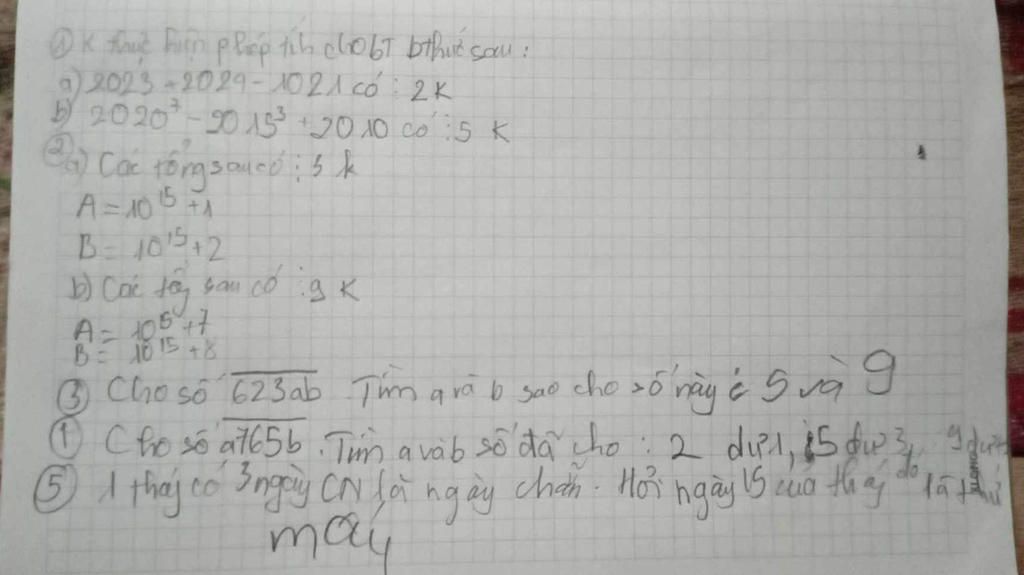 ① K thực hiện phép tính cho bt bthức sau:
a) 2023 + 2024 - 1021 có ⋮ 2 K
b) 2020⁷ - 2015³ + 2010 có ⋮ 5 K
② a) Các tổng sau có ⋮ 3 k
A = 10¹⁵ + 1
B = 10¹⁵ + 2
b) Các tổg sau có ⋮ 9 K
A = 10⁵ + 7
B = 10¹⁵ + 8
③ Cho số 623ab. Tìm a và b sao cho số này ⋮ 5 và 9
Cho số a765b. Tìm a và b số đã cho ⋮ 2 dư 1, ⋮ 5 dư 3, 9 dư
⑤ 1 tháj có 3 ngày CN là ngày chẵn. Hỏi ngày 15 của tháj đó là thứ
mấy